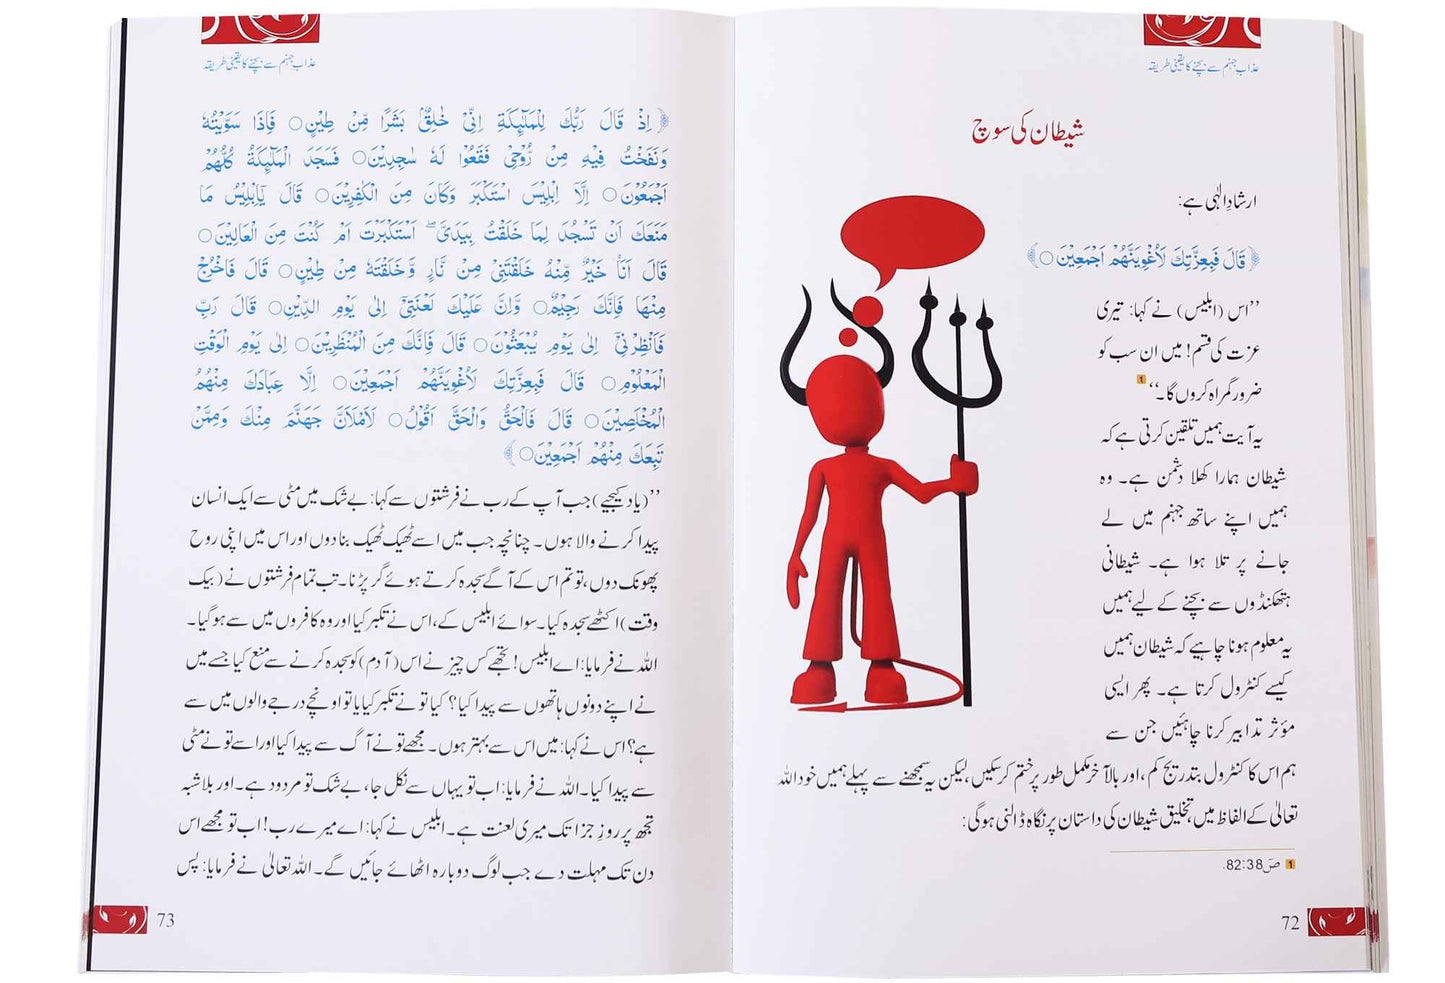 عذاب جہنم سے بچنے کا یقینی طریقہ
شیطان کی سوچ
ارشادِ الٰہی ہے:
﴿قَالَ فَبِعِزَّتِكَ لَاُغْوِيَنَّهُمْ اَجْمَعِيْنَ○﴾
”اس (ابلیس) نے کہا: تیری
عزت کی قسم! میں ان سب کو
ضرور گمراہ کروں گا۔“ 1
یہ آیت ہمیں تلقین کرتی ہے کہ
شیطان ہمارا کھلا دشمن ہے۔ وہ
ہمیں اپنے ساتھ جہنم میں لے
جانے پر تلا ہوا ہے۔ شیطانی
ہتھکنڈوں سے بچنے کے لیے ہمیں
یہ معلوم ہونا چاہیے کہ شیطان ہمیں
کیسے کنٹرول کرتا ہے۔ پھر ایسی
مؤثر تدابیر کرنا چاہئیں جن سے
ہم اس کا کنٹرول بتدریج کم، اور بالآخر مکمل طور پر ختم کر سکیں، لیکن یہ سمجھنے سے پہلے ہمیں خود اللہ
تعالیٰ کے الفاظ میں، تخلیق شیطان کی داستان پر نگاہ ڈالنی ہوگی:
1 صٓ 82:38.
72
عذاب جہنم سے بچنے کا یقینی طریقہ
﴿اِذْ قَالَ رَبُّكَ لِلْمَلٰٓىِٕكَةِ اِنِّىْ خَالِقٌۢ بَشَرًا مِّنْ طِيْنٍ○ فَاِذَا سَوَّيْتُهٗ
وَنَفَخْتُ فِيْهِ مِنْ رُّوْحِىْ فَقَعُوْا لَهٗ سٰجِدِيْنَ○ فَسَجَدَ الْمَلٰٓىِٕكَةُ كُلُّهُمْ
اَجْمَعُوْنَ○ اِلَّآ اِبْلِيْسَ اسْتَكْبَرَ وَكَانَ مِنَ الْكٰفِرِيْنَ○ قَالَ يٰٓاِبْلِيْسُ مَا
مَنَعَكَ اَنْ تَسْجُدَ لِمَا خَلَقْتُ بِيَدَىَّ ۖ اَسْتَكْبَرْتَ اَمْ كُنْتَ مِنَ الْعَالِيْنَ○
قَالَ اَنَا۠ خَيْرٌ مِّنْهُ خَلَقْتَنِىْ مِنْ نَّارٍ وَّخَلَقْتَهٗ مِنْ طِيْنٍ○ قَالَ فَاخْرُجْ
مِنْهَا فَاِنَّكَ رَجِيْمٌ○ وَّاِنَّ عَلَيْكَ لَعْنَتِىْٓ اِلٰى يَوْمِ الدِّيْنِ○ قَالَ رَبِّ
فَاَنْظِرْنِىْٓ اِلٰى يَوْمِ يُبْعَثُوْنَ○ قَالَ فَاِنَّكَ مِنَ الْمُنْظَرِيْنَ○ اِلٰى يَوْمِ الْوَقْتِ
الْمَعْلُوْمِ○ قَالَ فَبِعِزَّتِكَ لَاُغْوِيَنَّهُمْ اَجْمَعِيْنَ○ اِلَّا عِبَادَكَ مِنْهُمُ
الْمُخْلَصِيْنَ○ قَالَ فَالْحَقُّ وَالْحَقَّ اَقُوْلُ○ لَاَمْلَاَنَّ جَهَنَّمَ مِنْكَ وَمِمَّنْ
تَبِعَكَ مِنْهُمْ اَجْمَعِيْنَ○﴾
”(یاد کیجیے) جب آپ کے رب نے فرشتوں سے کہا: بے شک میں مٹی سے ایک انسان
پیدا کرنے والا ہوں۔ چنانچہ جب میں اسے ٹھیک ٹھیک بنا دوں اور اس میں اپنی روح
پھونک دوں، تو تم اس کے آگے سجدہ کرتے ہوئے گر پڑنا۔ تب تمام فرشتوں نے (بیک
وقت) اکٹھے سجدہ کیا۔ سوائے ابلیس کے، اس نے تکبر کیا اور وہ کافروں میں سے ہو گیا۔
اللہ نے فرمایا: اے ابلیس! تجھے کس چیز نے اس (آدم) کو سجدہ کرنے سے منع کیا جسے میں
نے اپنے دونوں ہاتھوں سے پیدا کیا؟ کیا تو نے تکبر کیا یا تو اونچے درجے والوں میں سے
ہے؟ اس نے کہا: میں اس سے بہتر ہوں۔ مجھے تو نے آگ سے پیدا کیا اور اسے تو نے مٹی
سے پیدا کیا۔ اللہ نے فرمایا: اب تو یہاں سے نکل جا، بے شک تو مردود ہے۔ اور بلاشبہ
تجھ پر روزِ جزا تک میری لعنت ہے۔ ابلیس نے کہا: اے میرے رب! اب تو مجھے اس
دن تک مہلت دے جب لوگ دوبارہ اٹھائے جائیں گے۔ اللہ تعالیٰ نے فرمایا: پس
73